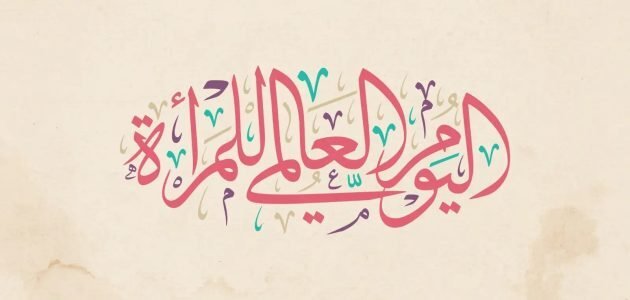 اليوم العالمي للمرأة